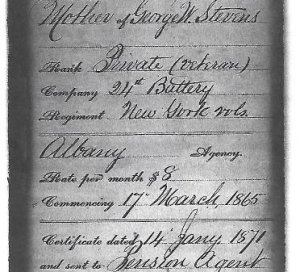 Mother of George W. Stevens
Rank Private (veteran)
Company 24th Battery
Regiment New York vols.
Albany Agency.
Rate per month $ 8
Commencing 17 March 1865
Certificate dated 14 Jany 1871
and sent to Pension Agent